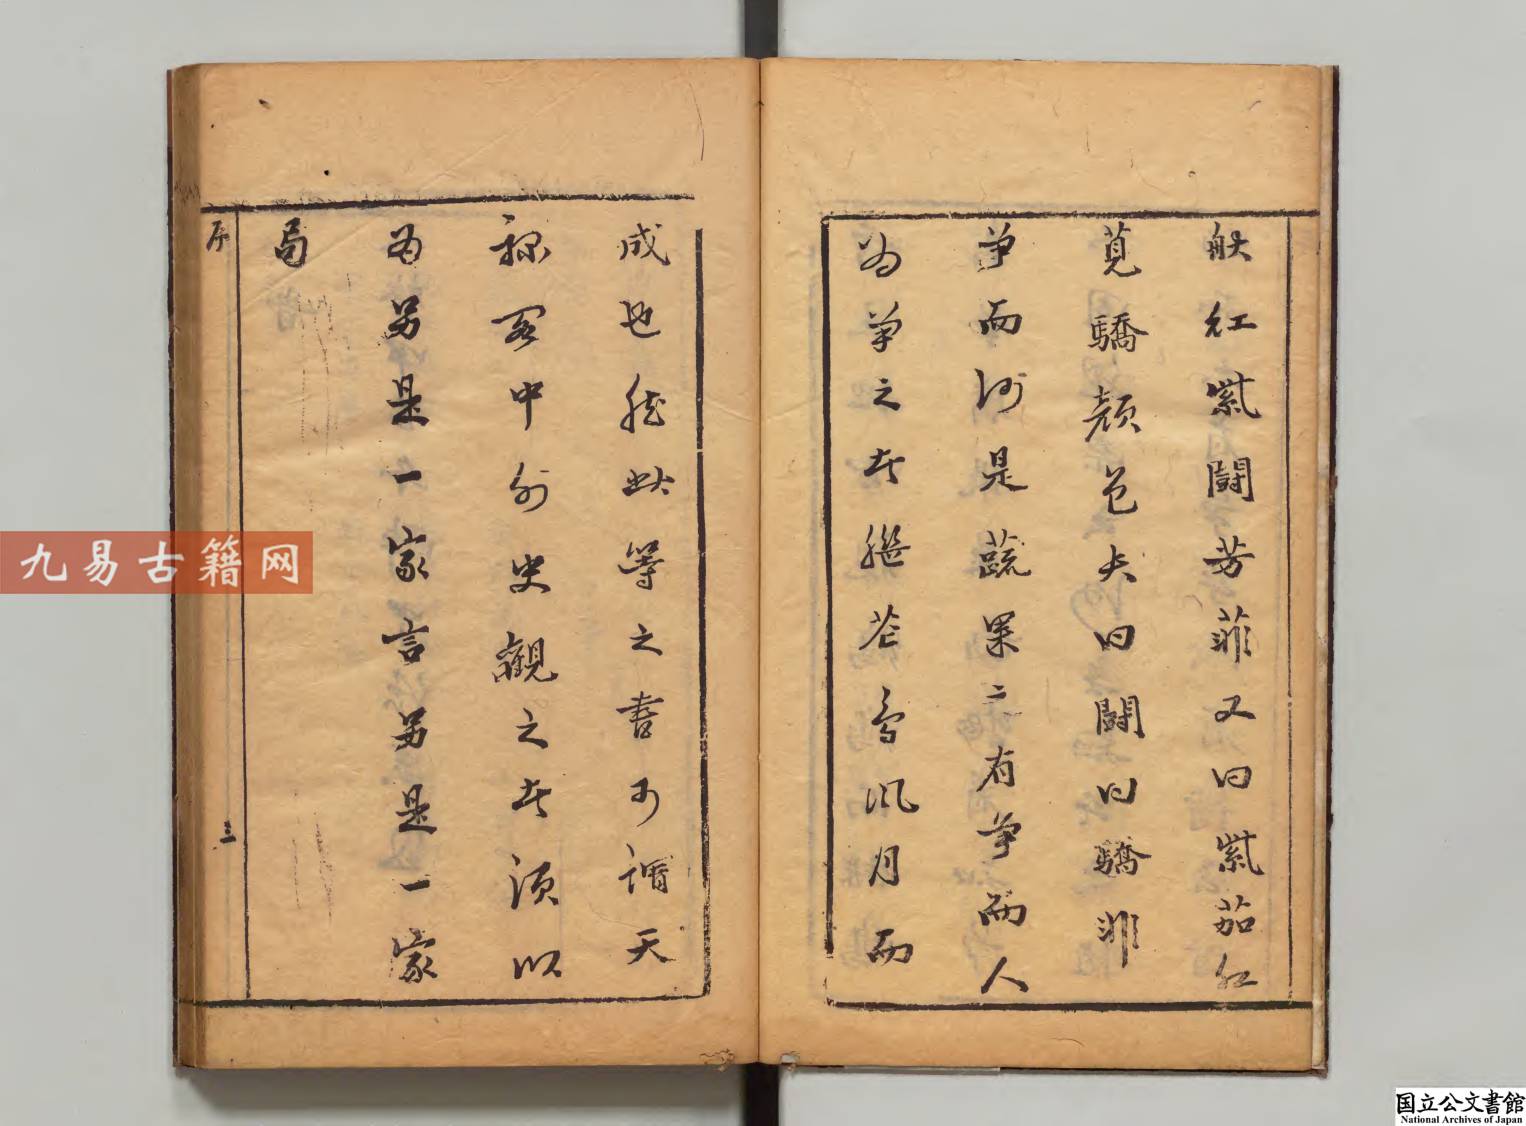 狀紅紫鬭芳菲又曰紫茄紅
莧驕顏色夫曰鬭曰驕非
爭而何是蔬果亦有爭而人
為爭之者繼花鳥風月而
成也然此等之書可謂天
祿閣中外史觀之者須以
為另是一家言另是一家
局
序
三
九易古籍网
国立公文書館
National Archives of Japan